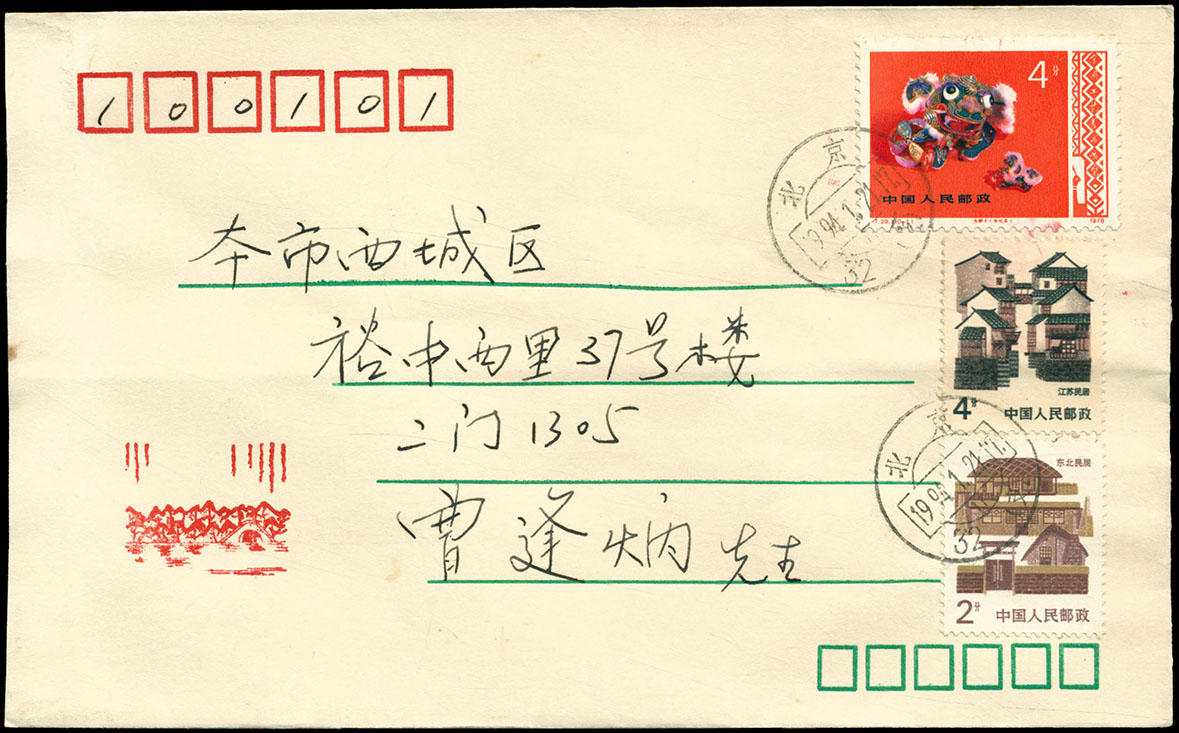 100101
4分
中国人民邮政
1978
北京
1994.1.21.17
32
本市西城区
裕中西里37号楼
江苏民居
4分 中国人民邮政
二门1305
北京
1994.1.21.17
32
东北民居
曹逢炳先生
2分 中国人民邮政